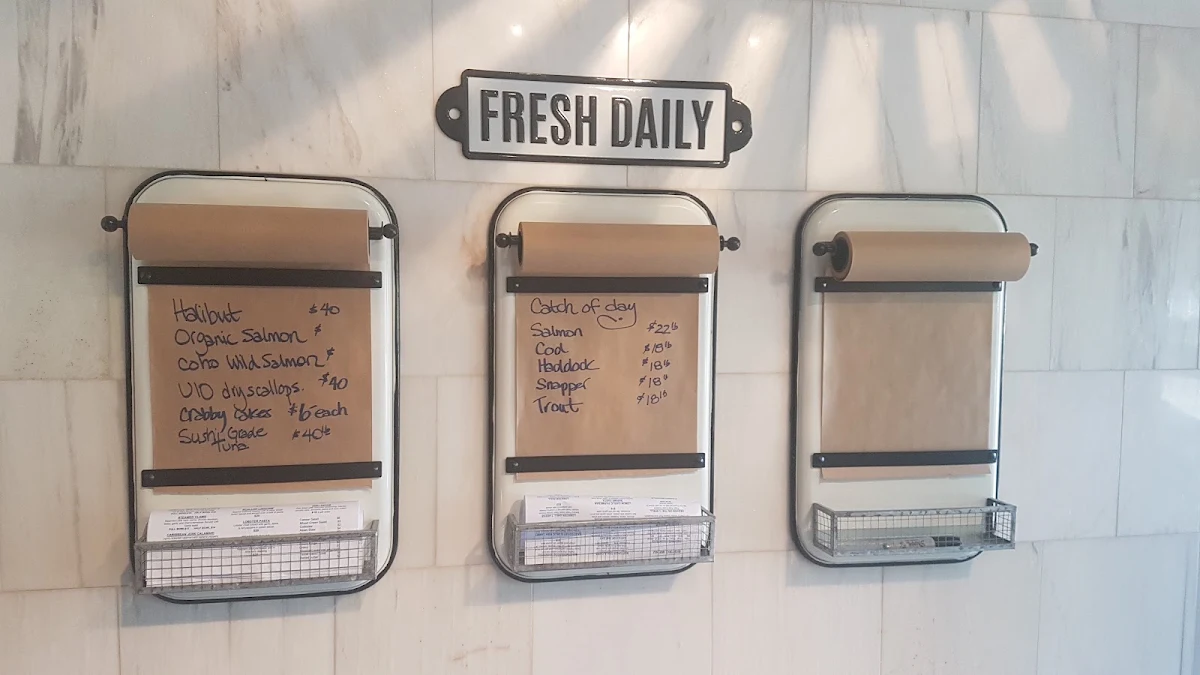 FRESH DAILY
Halibut $40
Organic Salmon $
Coho Wild Salmon $
U10 dry scallops. $40
Crabby Cakes $6 each
Sushi Grade $40 lb
Tuna
Catch of day
Salmon $22 lb
Cod $18 lb
Haddock $18 lb
Snapper $18 lb
Trout $18 lb